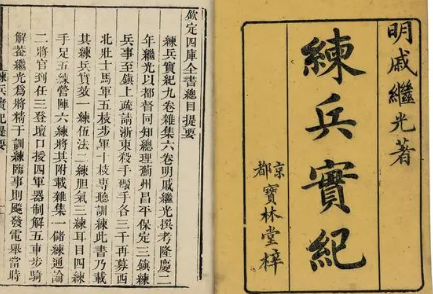 明戚繼光著
練兵實紀
京都
寶林堂梓
欽定四庫全書總目提要
練兵實紀九卷雜集六卷明戚繼光撰考隆慶二
年繼光以都督同知總理薊州昌平保定三鎮練
兵事至鎮上疏請浙東殺手手各三千再募西
北壯士馬軍五枝步軍十枝專聽訓練此書乃載
其練兵實效一練伍法二練胆氣三練耳目四練
手足五練營陣六練將其附載雜集一儲練通論
二將官到任三登壇口授四軍器制解五車步騎
解蓋繼光為將精于訓練臨事則飈發電舉當時
練兵實紀提要